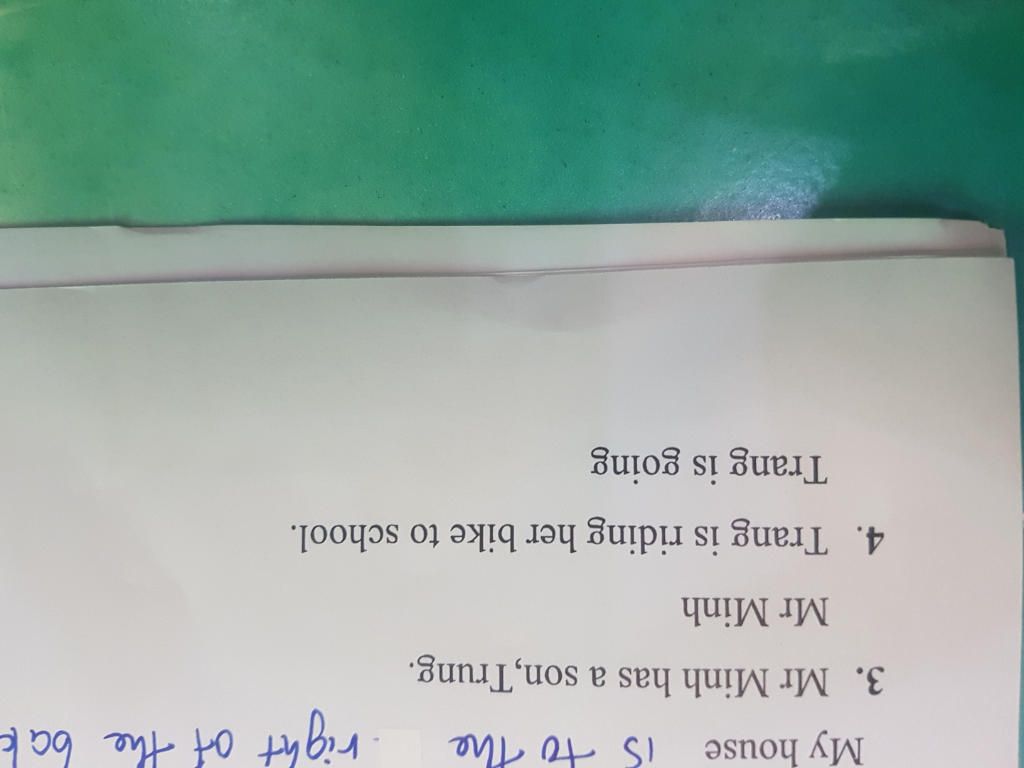 My house is to the right of the
3. Mr Minh has a son,Trung.
Mr Minh
4. Trang is riding her bike to school.
Trang is going